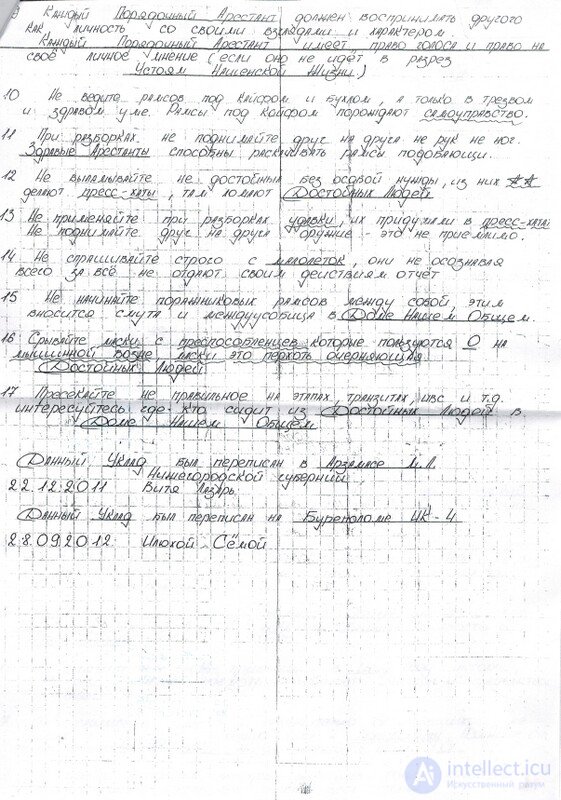 Каждый Порядочный Арестант должен воспринимать другого
как личность со своими взглядами и характером.
Каждый Порядочный Арестант имеет право голоса и право на
своё личное мнение (если оно не идёт в разрез
Устоям Нашенской Жизни.)
10 Не ведите рамсов под кайфом и бухлом, а только в трезвом
и здравом уме. Рамсы под кайфом порождают самоуправство.
11 При разборках не поднимайте друг на друга не рук не ног.
Здравые Арестанты способны раскидывать рамсы подобающи.
12 Не выламывайте не достойных без особой нужды, из них
делают пресс-хаты, там ломают Достойных Людей
13 Не применяйте при разборках удавки, их придумали в пресс-хатах
Не поднимайте друг на друга оружие - это не приемлимо.
14 Не спрашивайте строго с малолеток, они не осознавая
всего за всё не отдают своим действиям отчёт
15 Не начинайте поражняковых рамсов между собой, этим
вносится смута и междуусобица в Доме Нашем Общем.
16 Срывайте маски с преспособленцев которые пользуются О на
мышинной возне, маски это перхоть очерняющая
Достойных Людей
17 Пресекайте не правильное на этапах, транзитах, ивс и т.д.
интересуйтесь где кто сидит из Достойных Людей в
Доме Нашем Общем
Данный Уклад был переписан в Арзамасе
Нижегородской губернии
22.12.2011 Витя Лазарь
Данный Уклад был переписан на Буреполоме ИК-4
28.09.2012 Илюхой Сёмой
intellect.icu
Искусственный разум